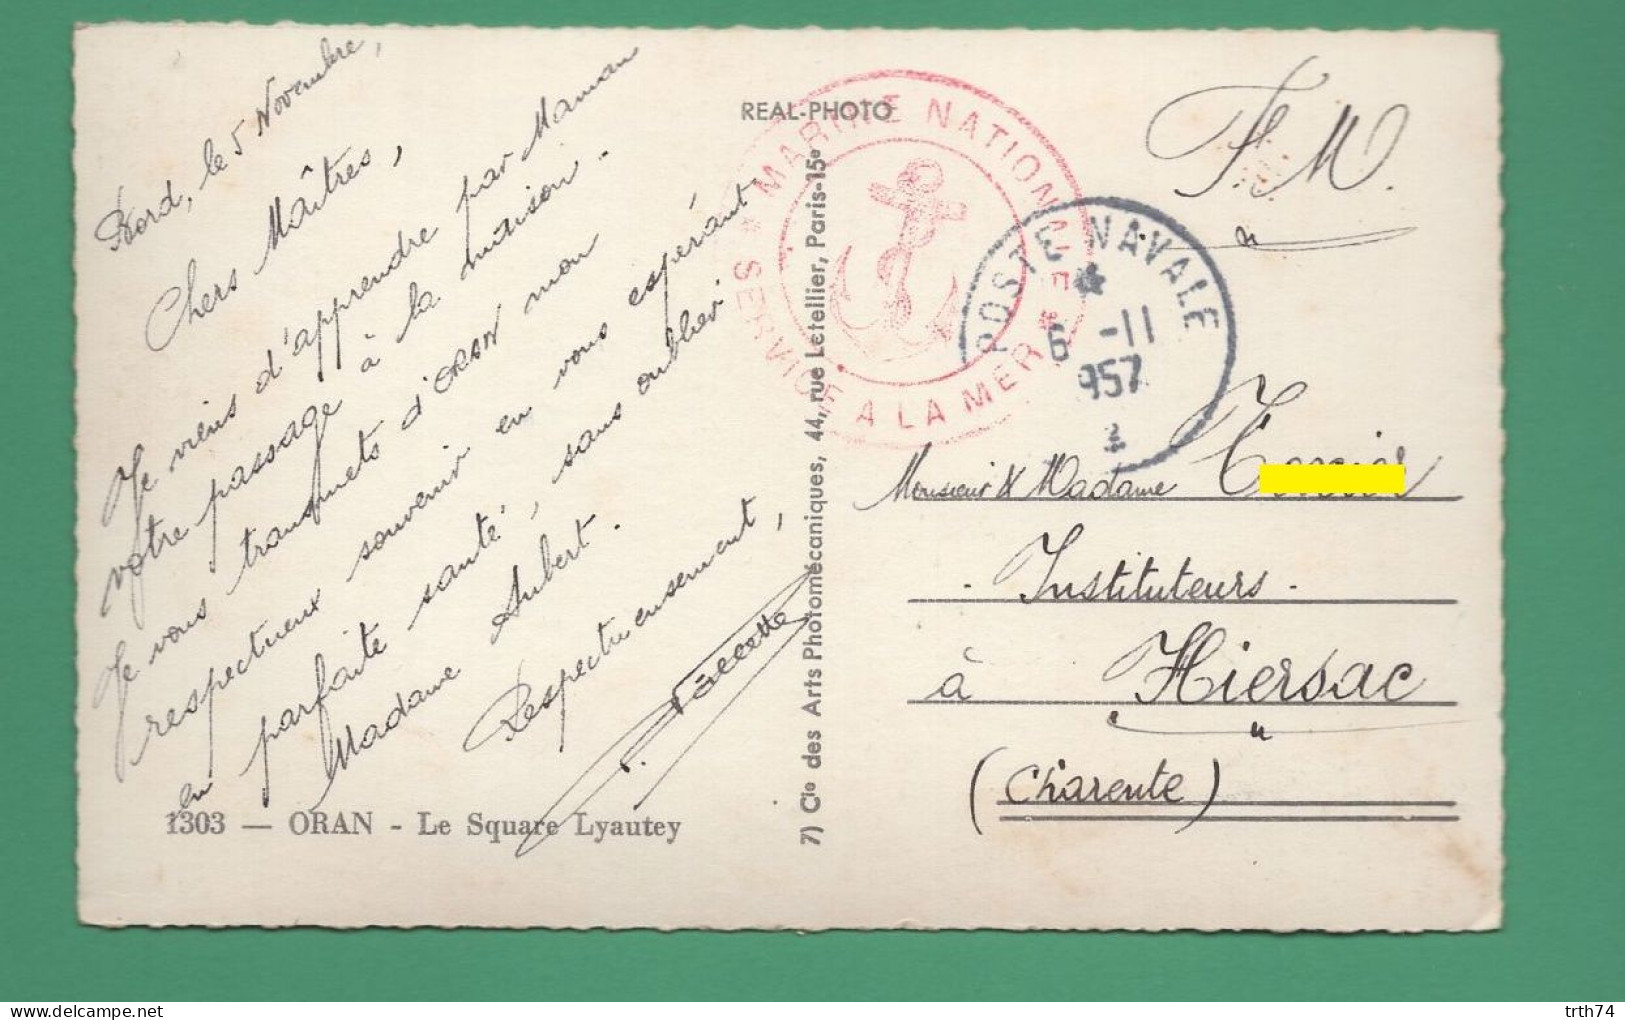 Bord, le 5 Novembre,
Chers Maîtres,
Je viens d'apprendre par Maman
votre passage à la maison.
Je vous transmets d'ORAN mon
respectueux souvenir en vous espérant
en parfaite santé, sans oublier
Madame Aubert.
Respectueusement,
1303 — ORAN - Le Square Lyautey
REAL-PHOTO
7) Cie des Arts Photomécaniques, 44, rue Letellier, Paris-15e
MARINE NATIONALE
SERVICE A LA MER
POSTE NAVALE
6 -11
957
F. M.
Monsieur & Madame
- Instituteurs -
à Hiersac
(Charente)
delcampe.net
trth74